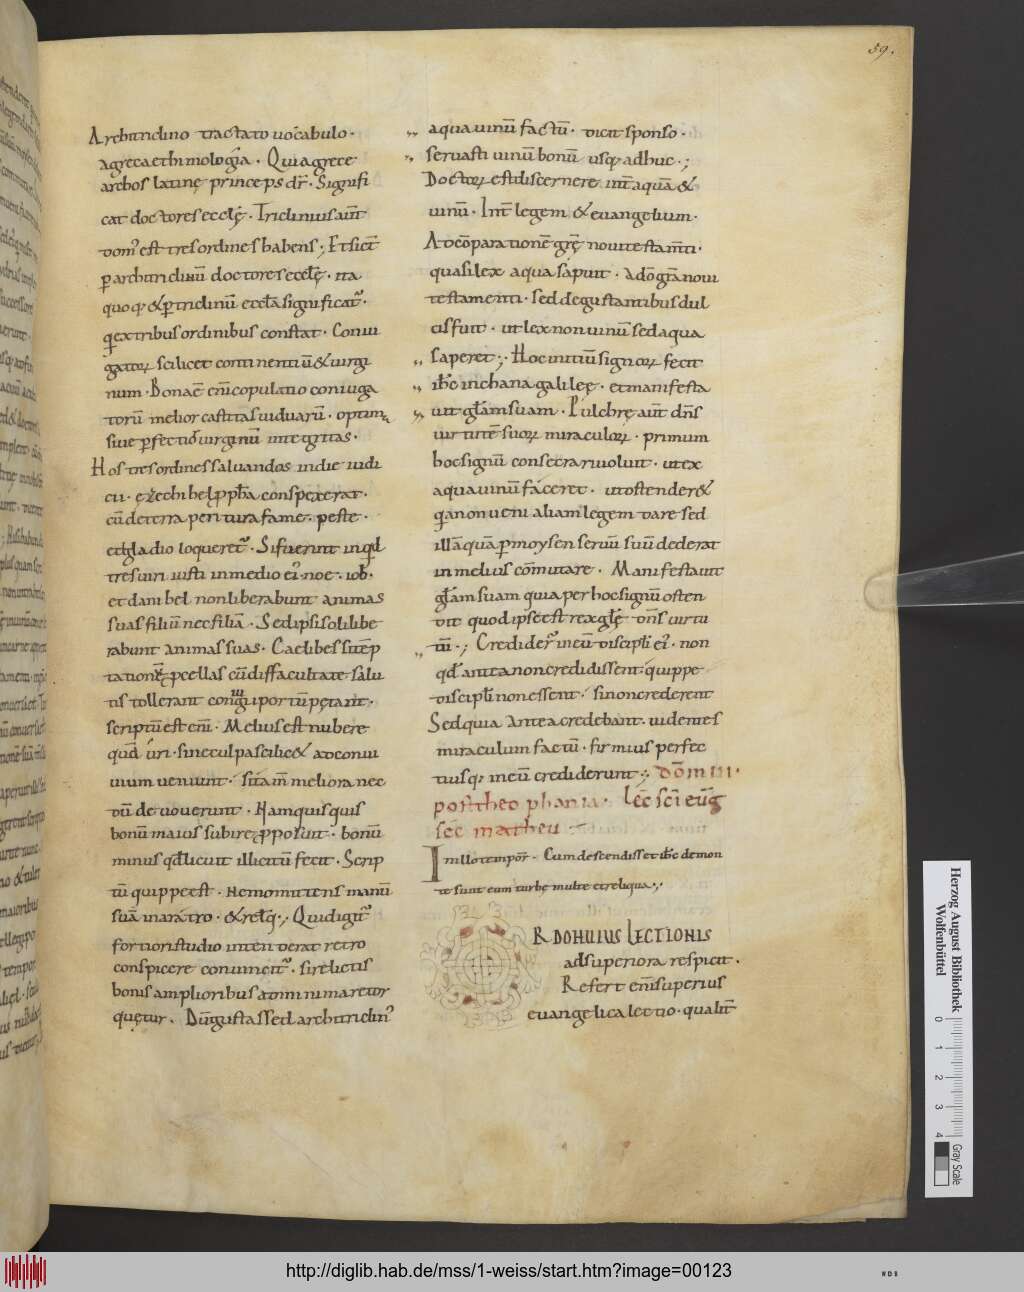 59.
Architriclino tractato uocabulo ·
a greca ethimologia · Qui a grece
archos latine princeps dr̄ · Signifi
cat doctores ecclę · Triclinius aūt
domꝰ est tres ordines habens ; Et sic̄
ꝑ architriclinū doctores ecclę̄ · ita
quoqꝫ & ꝑ triclinū eccl̄a significat᷑ ·
q̄ ex tribus ordinibus constat · Coniu
gatoꝝ scilicet continentiū & uirgi
num · Bona ē eni copulatio coniuga
torū melior castitas uiduarū · optima
siue ꝑfectior uirginū integritas ·
Hos tres ordines saluandos in die iudi
cii · ezechihel ꝓph̄a conspexerat ·
cū de terra peritura fame · peste ·
et gladio loqueret᷑ · Si fuerint inq̄d
tres uiri iusti in medio eiꝰ · noe · iob ·
et danihel non liberabunt animas
suas filiū nec filiā · Sed ipsi soli libe
rabunt animas suas · Caelibes si tēp
tationē ꝓcellas cū difficultate salu
tis tollerant coniugii portū petant ·
scriptū est eni · Melius est nubere
quā uri · sine culpa scilic& ad coniu
uium ueniunt · si tam̄ meliora nec
dū deuouerunt · Nam quisquis
bonū maius subire ꝓposuit · bonū
minus qd̄ licuit illicitū fecit · Scrip
tū quippe est · Nemo mittens manū
suā in aratro · & relq̄ ; Qui digit᷑
fortiori studio intenderat retro
conspicere conuincit᷑ · si relictis
bonis amplioribus ad minima retor
quętur · Dū gustasset architriclinꝰ
aqua uinū factū · dicit sponso ·
seruasti uinū bonū usqꝫ adhuc ·;
Doctoꝝ est discernere int̄ aquā &
uinū · Int̄ legem & euangelium ·
Ad cōparationē grę̄ noui testam̄ti ·
quasi lex aqua sapuit · ad grām noui
testamenti · sed degustantibus dul
cis fuit · ut lex non uinū sed aqua
saperet ; Hoc initiū signoꝝ fecit
ih̄c in chana galileę · et manifesta
uit gl̄am suam · Pulchre aūt dn̄s
uirtutē suoꝝ miraculoꝝ · primum
hoc signū consecrari uoluit · ut ex
aqua uinū faceret · ut ostender&
q̄a non ueni aliam legem dare sed
illā quā ꝑ moysen seruū suū dederat
in melius cōmutare · Manifestauit
gl̄am suam quia per hoc signū osten
dit quod ipse est rex glę̄ dn̄s uirtu
tū ·; Crediderᵗ in eū discipl̄i eiꝰ · non
qd̄ antea non credidissent · quippe
discipl̄i non essent · si non crederent
Sed quia antea credebant · uidentes
miraculum factū · firmius perfec
tiusqꝫ in eū crediderunt ; Dōm III ·
post theophania · Lec̄ sc̄i eūg
sec̄ matheū
In illo tempoř · Cum descendisset ih̄c de mon
te secuti sunt eum turbę multe et reliqua ·;
ORDO HUIUS LECTIONIS
ad superiora respicit ·
Refert eni superius
euangelica lectio · qualit̄
Herzog August Bibliothek
Wolfenbüttel
0 1 2 3 4
Gray Scale
http://diglib.hab.de/mss/1-weiss/start.htm?image=00123